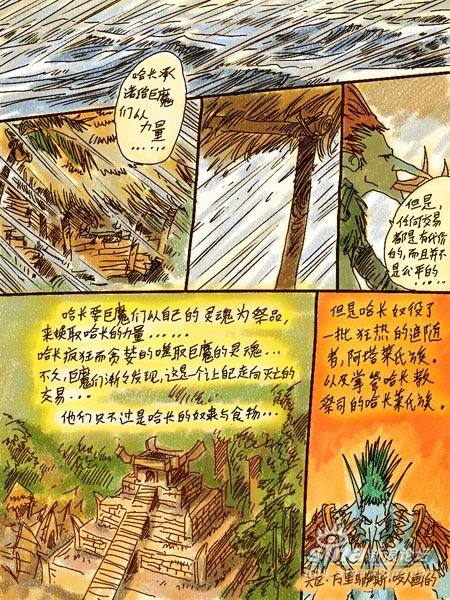 哈卡承
诺给巨魔
们以
力量
......
但是,
任何交易
都是有代价
的,而且并不
是公平的
......
哈卡要巨魔们以自己的灵魂为祭品,
来换取哈卡的力量......
哈卡疯狂而贪婪的吸取巨魔的灵魂...
不久,巨魔们渐渐发现,这是个让自己走向灭亡的
交易...
他们只不过是哈卡的奴隶与食物...
但是哈卡奴役了
一批狂热的追随
者,阿塔莱氏族。
以及掌管哈卡教
祭司的哈卡莱氏族。
sina